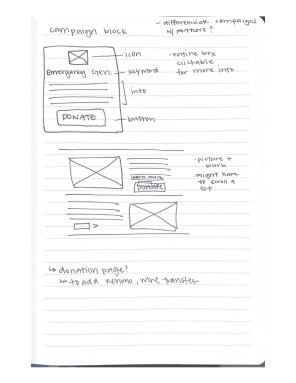 campaign block
- differentiate campaigns
w/ partners?
icon
Emergency Gen.
keyword
info
DONATE
button
- entire box
clickable
for more info
learn more
Donate
- picture +
blurb
- might have
to scroll a
lot
>
↳ donation page?
↳ to add venmo, wire transfer